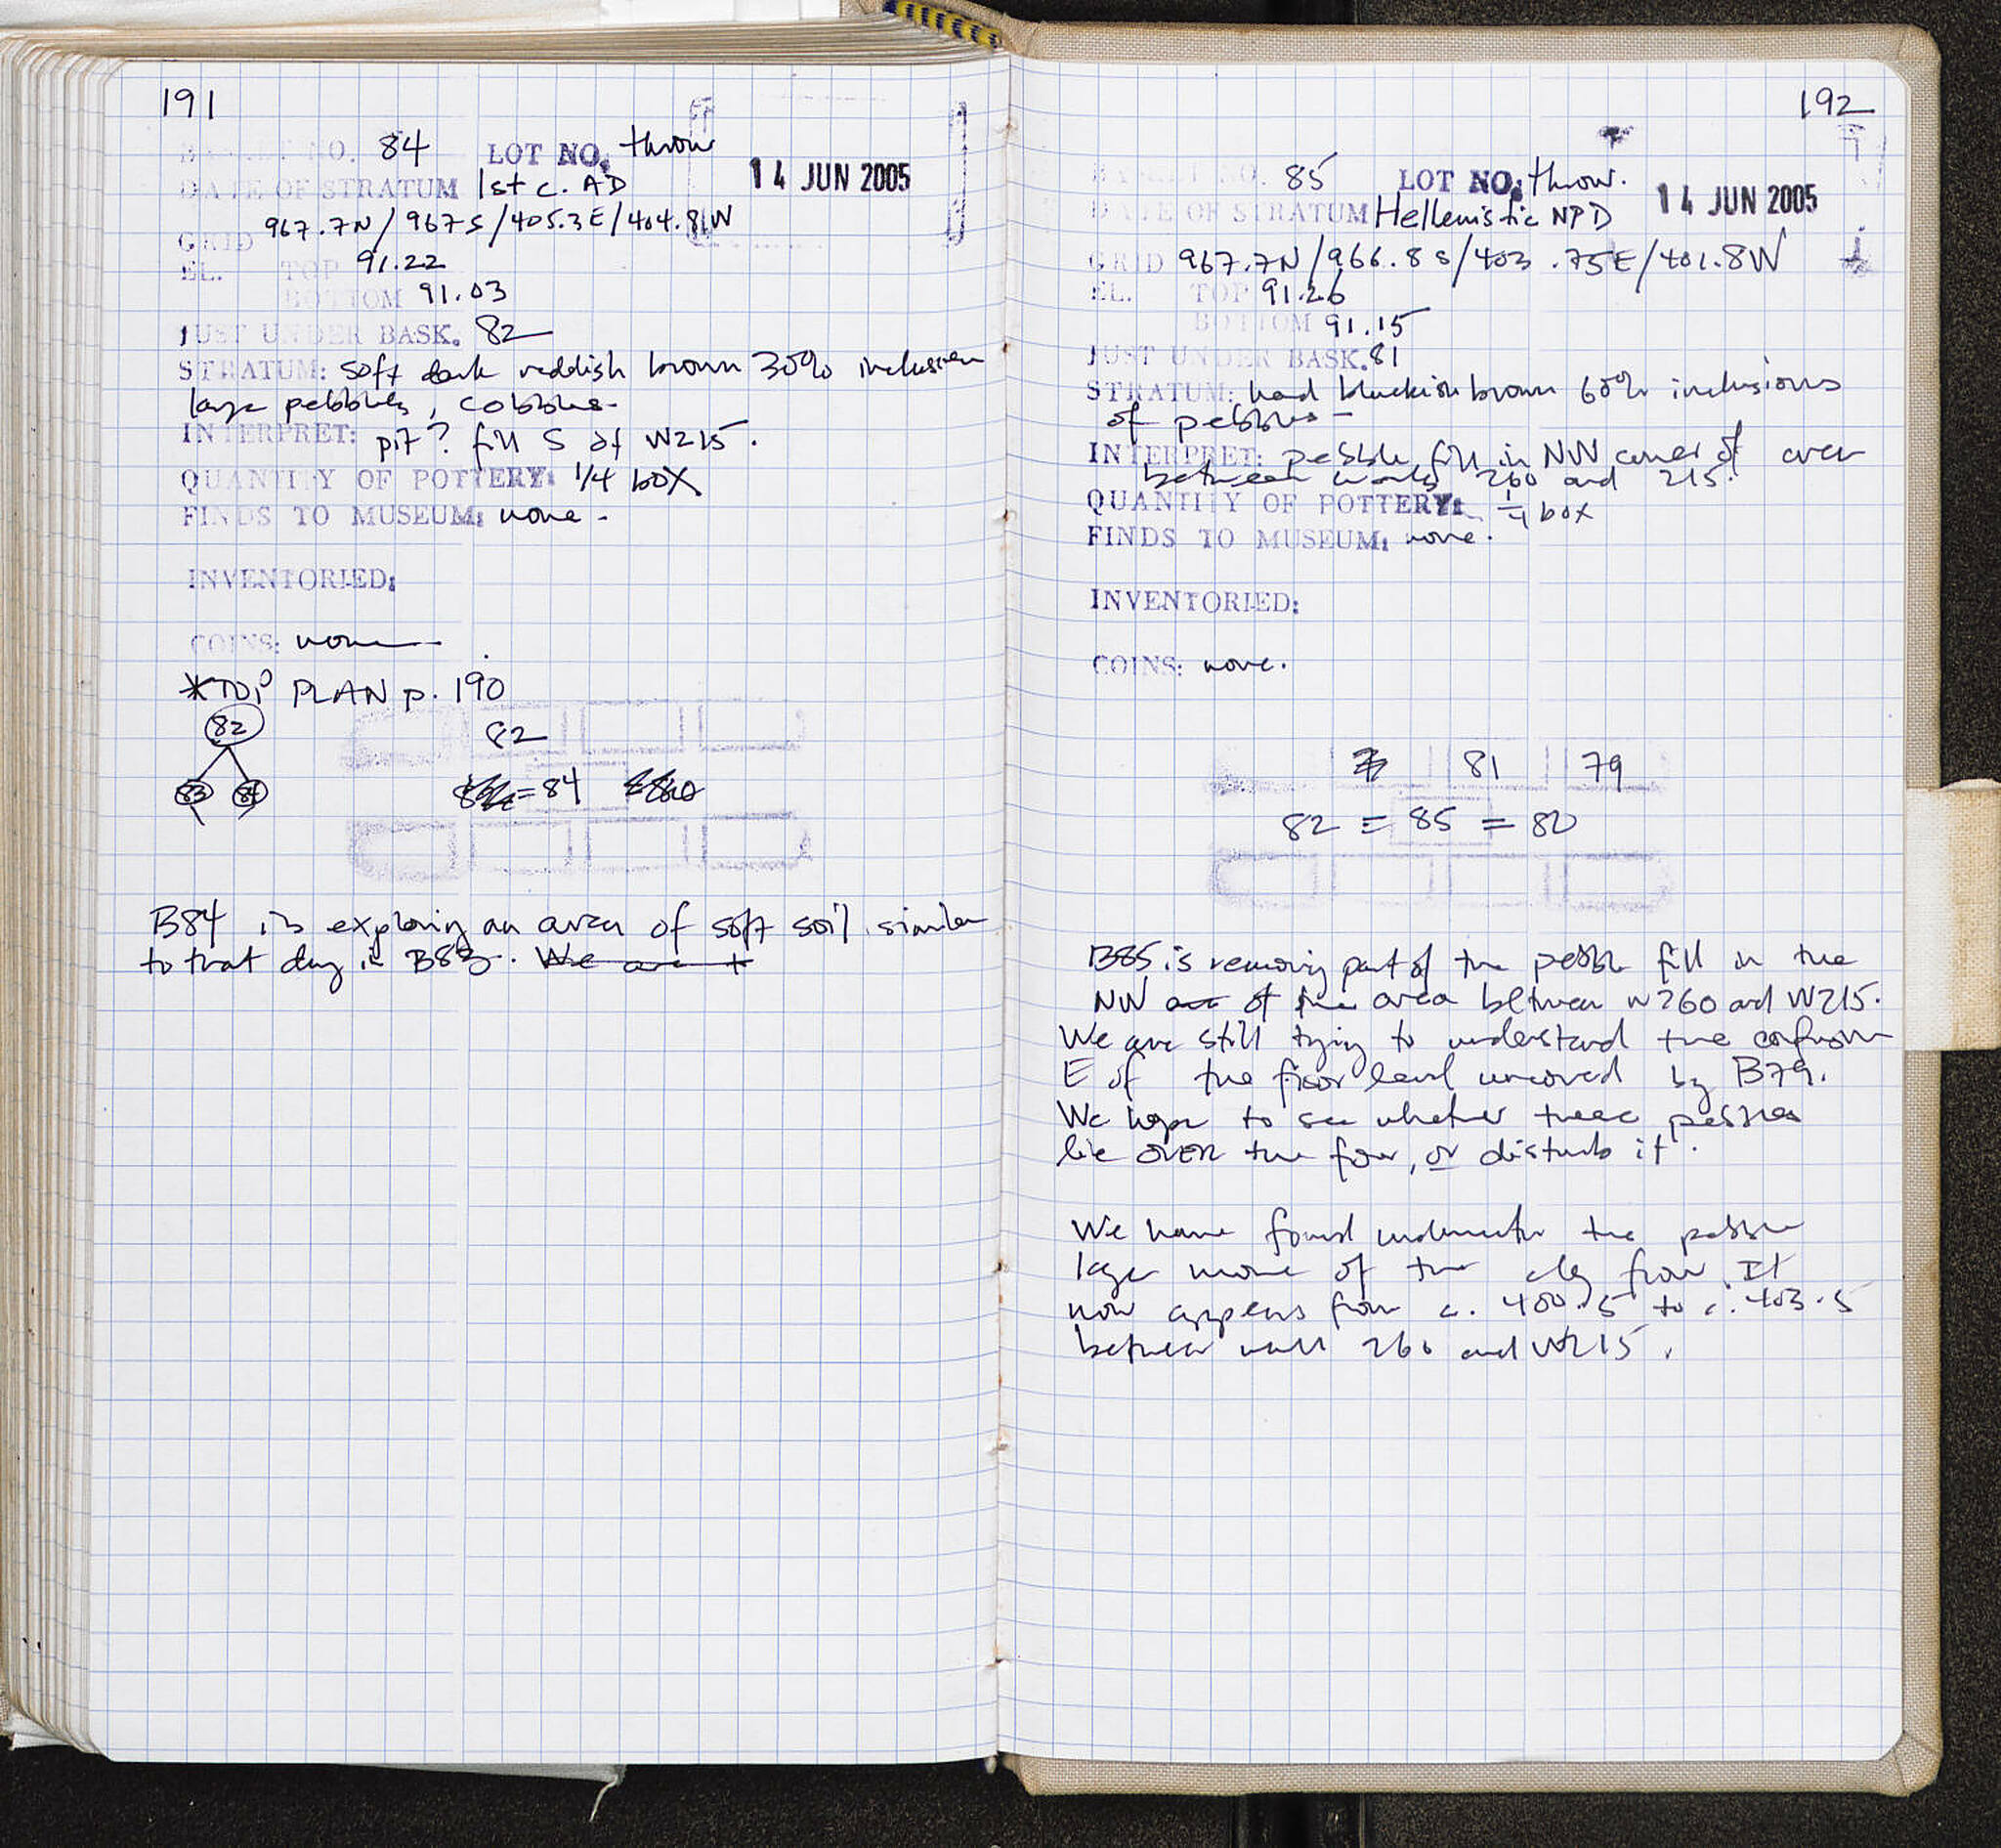 191
BASKET NO. 84 LOT NO. throw
14 JUN 2005
DATE OF STRATUM 1st c. AD
GRID 967.7N/967S/405.3E/404.8W
EL. TOP 91.22
BOTTOM 91.03
JUST UNDER BASK. 82
STRATUM: soft dark reddish brown 30% inclusion
large pebbles, cobbles-
INTERPRET: pit? fill S of W215.
QUANTITY OF POTTERY: 1/4 box
FINDS TO MUSEUM: none -
INVENTORIED:
COINS: none
*TOP PLAN p. 190
82
83 84
82
= 84
B84 is exploring an area of soft soil similar
to that dug in B83. We are t
192
BASKET NO. 85 LOT NO. throw.
14 JUN 2005
DATE OF STRATUM Hellenistic NPD
GRID 967.7N/966.8S/403.75E/401.8W
EL. TOP 91.26
BOTTOM 91.15
JUST UNDER BASK. 81
STRATUM: hard blackish brown 60% inclusions
of pebbles -
INTERPRET: pebble fill in NW corner of area
between walls 260 and 215.
QUANTITY OF POTTERY: 1/4 box
FINDS TO MUSEUM: none.
INVENTORIED:
COINS: none.
81 79
82 = 85 = 80
B85 is removing part of the pebble fill in the
NW of the area between W260 and W215.
We are still trying to understand the confusion
E of the floor level uncovered by B79.
We hope to see whether these pebbles
lie OVER the floor, or disturb it.
We have found underneath the pebble
layer more of the clay floor. It
now appears from c. 400.5 to c. 403.5
between wall 260 and W215.